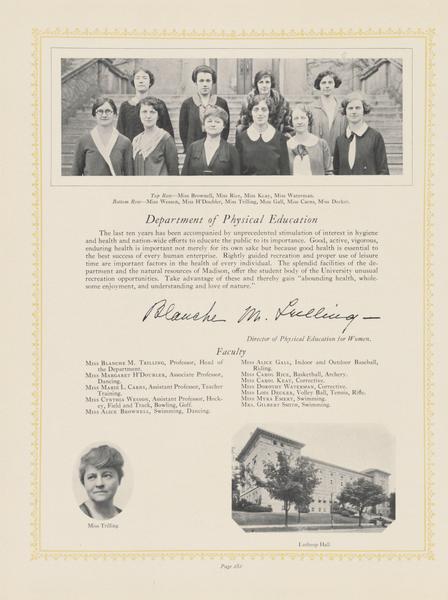 Top Row—Miss Brownell, Miss Rice, Miss Keay, Miss Waterman.
Bottom Row—Miss Wesson, Miss H'Doubler, Miss Trilling, Miss Gall, Miss Carns, Miss Decker.
Department of Physical Education
The last ten years has been accompanied by unprecedented stimulation of interest in hygiene
and health and nation-wide efforts to educate the public to its importance. Good, active, vigorous,
enduring health is important not merely for its own sake but because good health is essential to
the best success of every human enterprise. Rightly guided recreation and proper use of leisure
time are important factors in the health of every individual. The splendid facilities of the de-
partment and the natural resources of Madison, offer the student body of the University unusual
recreation opportunities. Take advantage of these and thereby gain "abounding health, whole-
some enjoyment, and understanding and love of nature."
Blanche M. Trilling—
Director of Physical Education for Women.
Faculty
Miss Blanche M. Trilling, Professor, Head of
the Department.
Miss Margaret H'Doubler, Associate Professor,
Dancing.
Miss Marie L. Carns, Assistant Professor, Teacher
Training.
Miss Cynthia Wesson, Assistant Professor, Hock-
ey, Field and Track, Bowling, Golf.
Miss Alice Brownell, Swimming, Dancing.
Miss Alice Gall, Indoor and Outdoor Baseball,
Riding.
Miss Carol Rice, Basketball, Archery.
Miss Carol Keay, Corrective.
Miss Dorothy Waterman, Corrective.
Miss Lois Decker, Volley Ball, Tennis, Rifle.
Miss Myra Emery, Swimming.
Mrs. Gilbert Smith, Swimming.
Miss Trilling
Lathrop Hall
Page 282